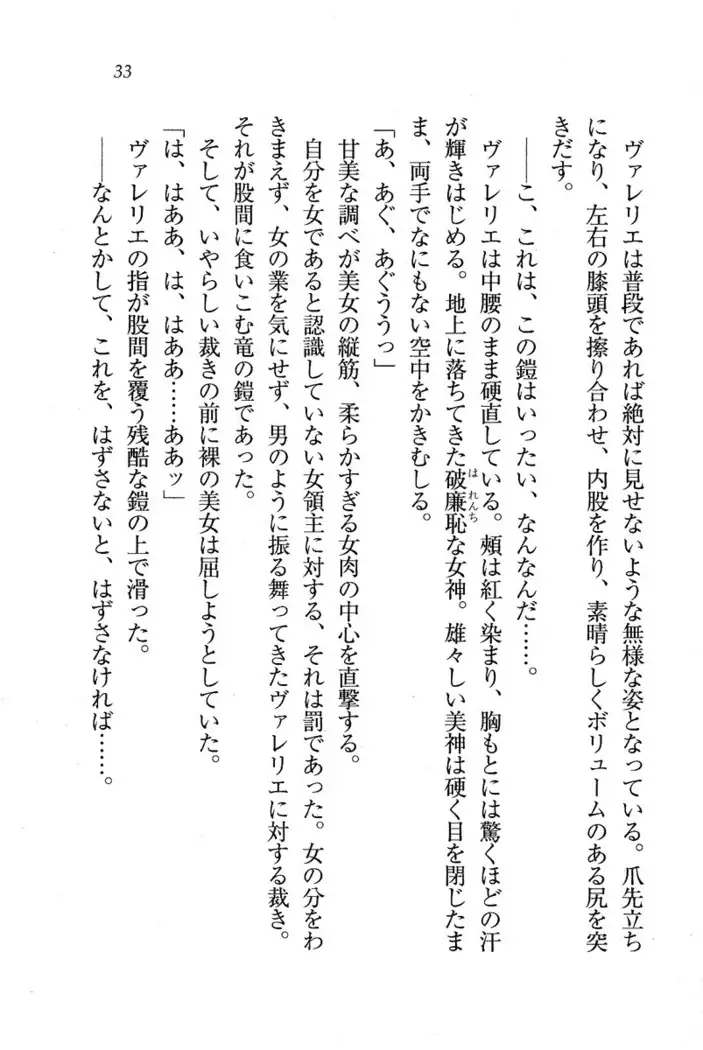 33
ヴァレリエは普段であれば絶対に見せないような無様な姿となっている。爪先立ち
になり、左右の膝頭を擦り合わせ、内股を作り、素晴らしくボリュームのある尻を突
きだす。
――こ、これは、この鎧はいったい、なんなんだ……。
ヴァレリエは中腰のまま硬直している。頬は紅く染まり、胸もとには驚くほどの汗
が輝きはじめる。地上に落ちてきた破廉恥な女神。雄々しい美神は硬く目を閉じたま
はれんち
ま、両手でなにもない空中をかきむしる。
「あ、あぐ、あぐううっ」
甘美な調べが美女の縦筋、柔らかすぎる女肉の中心を直撃する。
自分を女であると認識していない女領主に対する、それは罰であった。女の分をわ
きまえず、女の業を気にせず、男のように振る舞ってきたヴァレリエに対する裁き。
それが股間に食いこむ竜の鎧であった。
そして、いやらしい裁きの前に裸の美女は屈しようとしていた。
「は、はああ、は、はああ……ああッ」
ヴァレリエの指が股間を覆う残酷な鎧の上で滑った。
――なんとかして、これを、はずさないと、はずさなければ……。